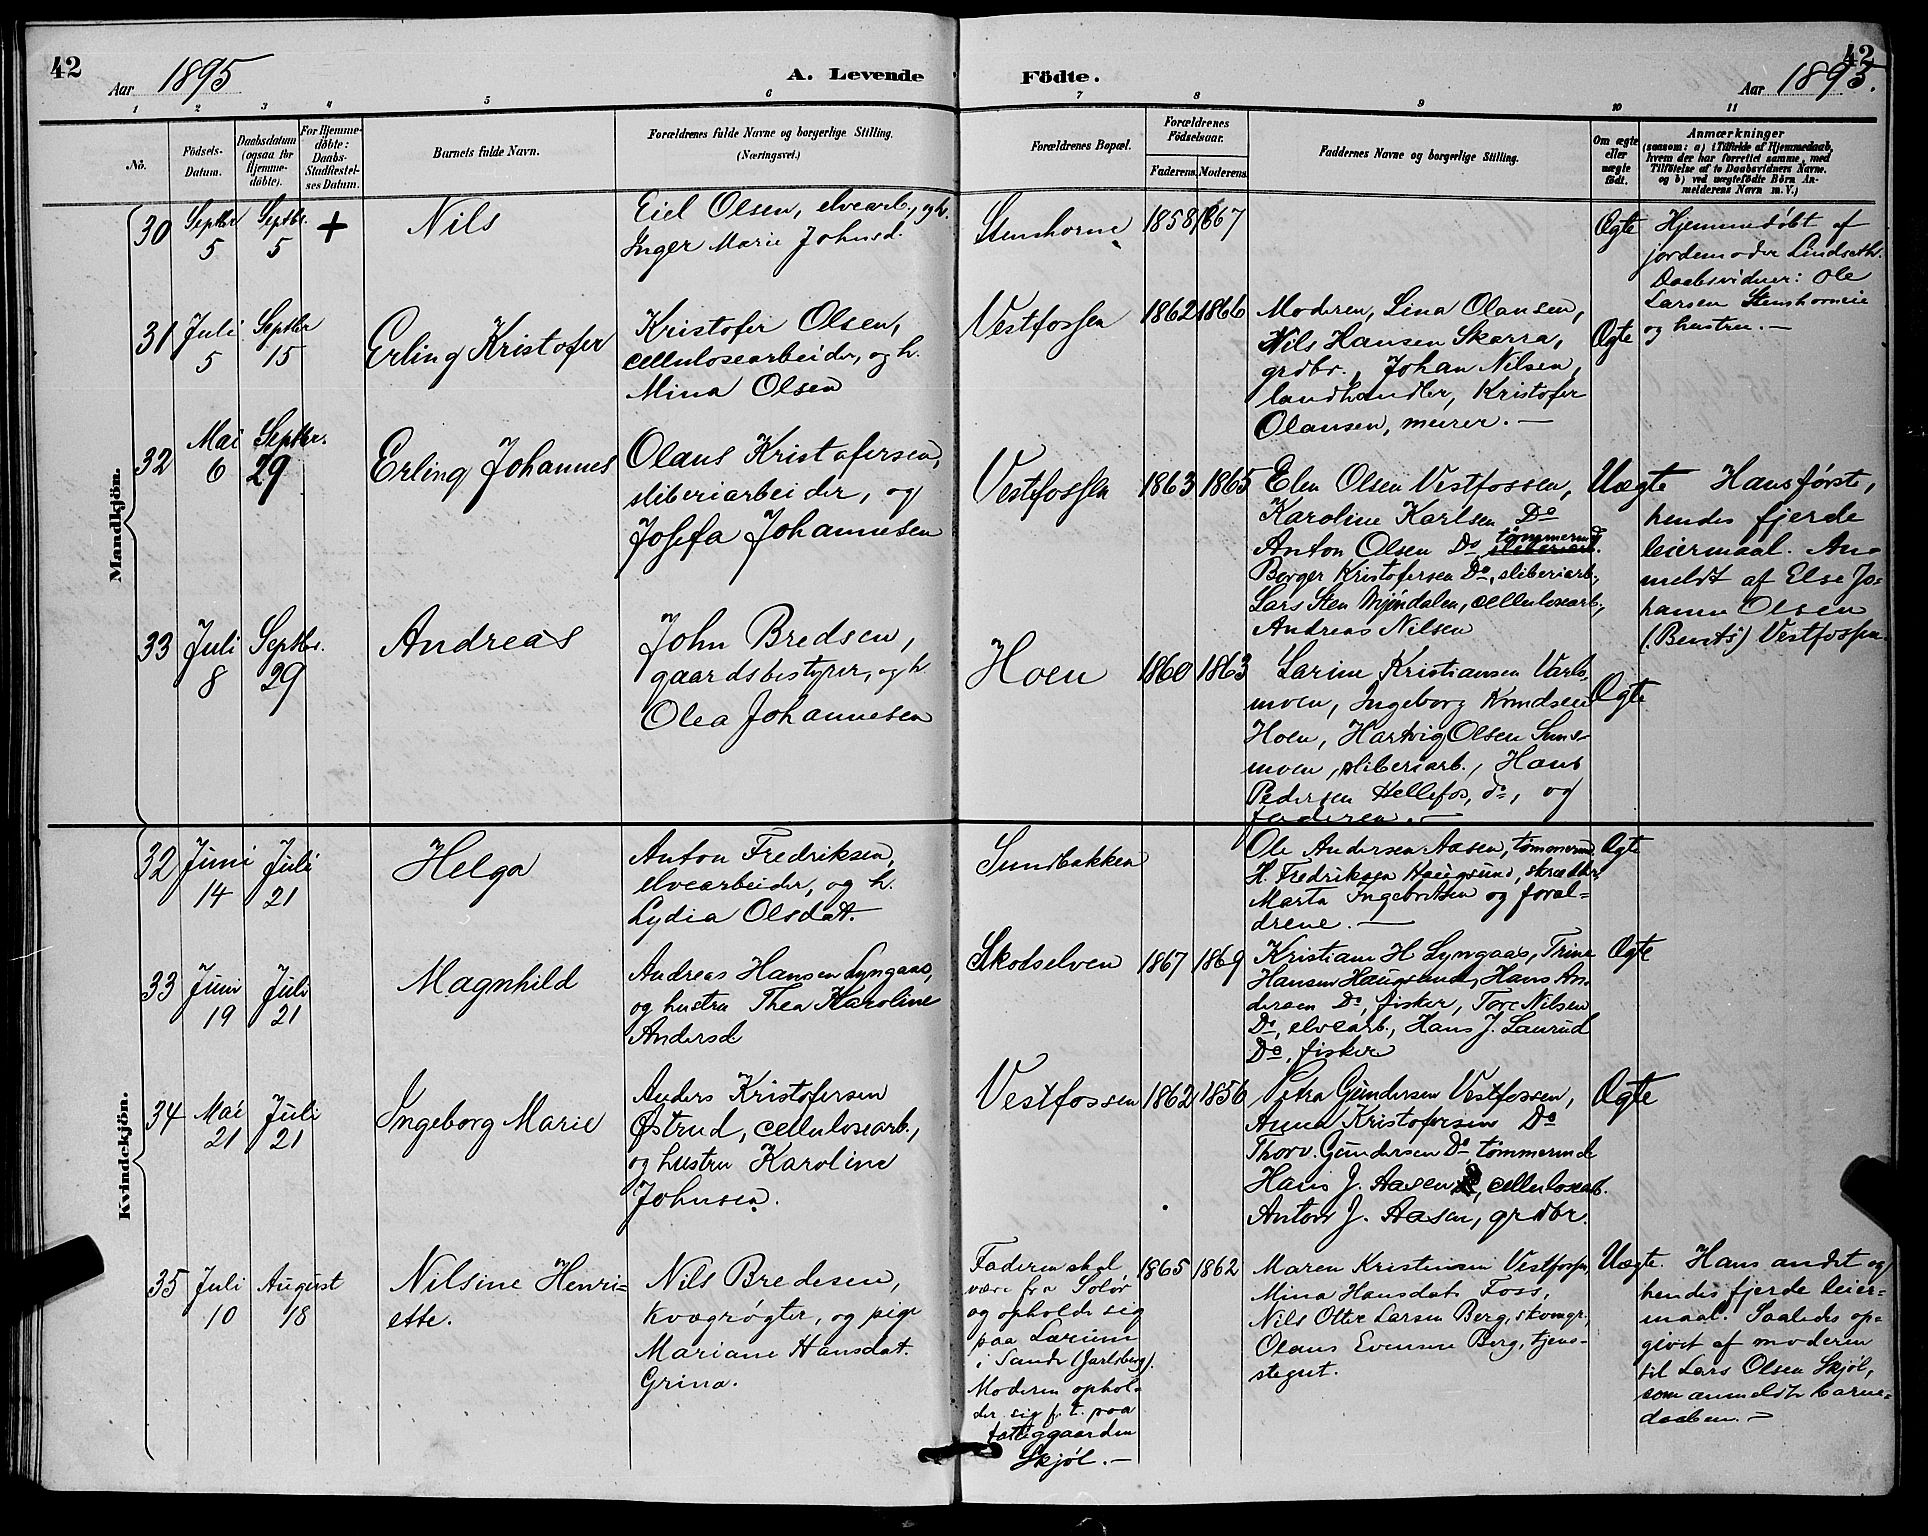 42
Aar 1895
A. Levende Födte.
Aar 1895.
42
1 2 3 4 5 6 7 8 9 10 11
No.
Födsels-
Datum.
Daabsdatum
(ogsaa for
Hjemme-
döbte).
For Hjemme-
döbte:
Daabs-
Stadfæstel-
ses Datum.
Barnets fulde Navn.
Forældrenes fulde Navne og borgerlige Stilling.
(Næringsvei.)
Forældrenes Bopæl.
Forældrenes
Födselsaar.
Faderens. Moderens.
Faddernes Navne og borgerlige Stilling.
Om ægte
eller
uægte
födt.
Anmærkninger
(saasom: a) i Tilfælde af Hjemmedaab,
hvem der har forrettet samme, med
Tilföielse af to Daabsvidners Navne,
og b) ved uægtefödte Börn An-
melderens Navn m. V.)
Mandkjön.
30
Septbr
5
Septbr.
5
+
Nils
Eiel Olsen, elvearb., og h.
Inger Marie Johnsd.
Stenshorne
1858
1867
Ægte
Hjemmedøbt af
jordemoder Lindseth.
Daabsvidner: Ole
Larsen Stenshorneie
og hustru. —
31
Juli
5
Septbr
15
Erling Kristofer
Kristofer Olsen,
cellulosearbeider, og h.
Mina Olsen
Vestfossen
1862
1866
Moderen, Lina Olausen,
Nils Hansen Skarra,
grdbr., Johan Nilsen,
landhandler, Kristofer
Olausen, murer. —
Ægte
32
Mai
6
Septbr.
29
Erling Johannes
Olaus Kristofersen,
sliberiarbeider, og
Josefa Johannesen
Vestfossen
1863
1865
Elen Olsen Vestfossen,
Karoline Karlsen Do
Anton Olsen Do, tømmermd.
Berger Kristofersen Do, sliberiarb.,
Lars Sten Mjøndalen, cellulosearb.,
Andreas Nilsen
Uægte
Hans første,
hendes fjerde
leiermaal. An-
meldt af Else Jo-
hanne Olsen
(Bents) Vestfossen
33
Juli
8
Septbr.
29
Andreas
John Bredsen,
gaardsbestyrer, og h.
Olea Johannesen
Hoen
1860
1863
Larine Kristiansen Varls-
moen, Ingeborg Knudsen
Hoen, Hartvig Olsen Suns-
moen, sliberiarb., Hans
Pedersen Hellefos, do, og
faderen. —
Ægte
Kvindekjön.
32
Juni
14
Juli
21
Helga
Anton Fredriksen,
elvearbeider, og h.
Lydia Olsdat.
Sundbakken
Ole Andersen Aasen, tømmerm
H. Fredriksen Haugsund, skrædder
Marta Ingebretsen og foræl-
drene. —
Ægte
33
Juni
19
Juli
21
Magnhild
Andreas Hansen Lyngaas,
og hustru Thea Karoline
Andersd
Skotselven
1867
1869
Kristiane H Lyngaas, Trine
Hansen Haugsund, Hans An-
dersen Do, fisker, Tore Nilsen
Do, elvearb., Hans J. Laurud
Do, fisker
Ægte
34
Mai
21
Juli
21
Ingeborg Marie
Anders Kristofersen
Østrud, cellulosearb.,
og hustru Karoline
Johnsen.
Vestfossen
1862
1856
Petra Gundersen Vestfossen,
Anna Kristofersen Do
Thorv. Gundersen Do, tømmermd
Hans J. Aasen, cellulosearb.
Anton J. Aasen, grdbr.
Ægte
35
Juli
10
August
18
Nilsine Henri-
ette.
Nils Bredesen,
kvægrøgter, og pige
Mariane Hansdat.
Grina.
Faderen skal
være fra Solør
og opholde sig
paa Lærum
i Sande (Jarlsberg).
Moderen ophol-
der sig f. t. paa
fattiggaarden
Skjøl. —
1865
1862
Maren Kristiansen Vestfossen,
Mina Hansdat. Foss,
Nils Otter Larsen Berg, skomgr,
Olaus Evensen Berg, tjene-
stegut.
Uægte.
Hans andet og
hendes fjerde leier-
maal. Saaledes op-
givet af moderen
til Lars Olsen Skjøl,
som anmeldte barne-
daaben. —